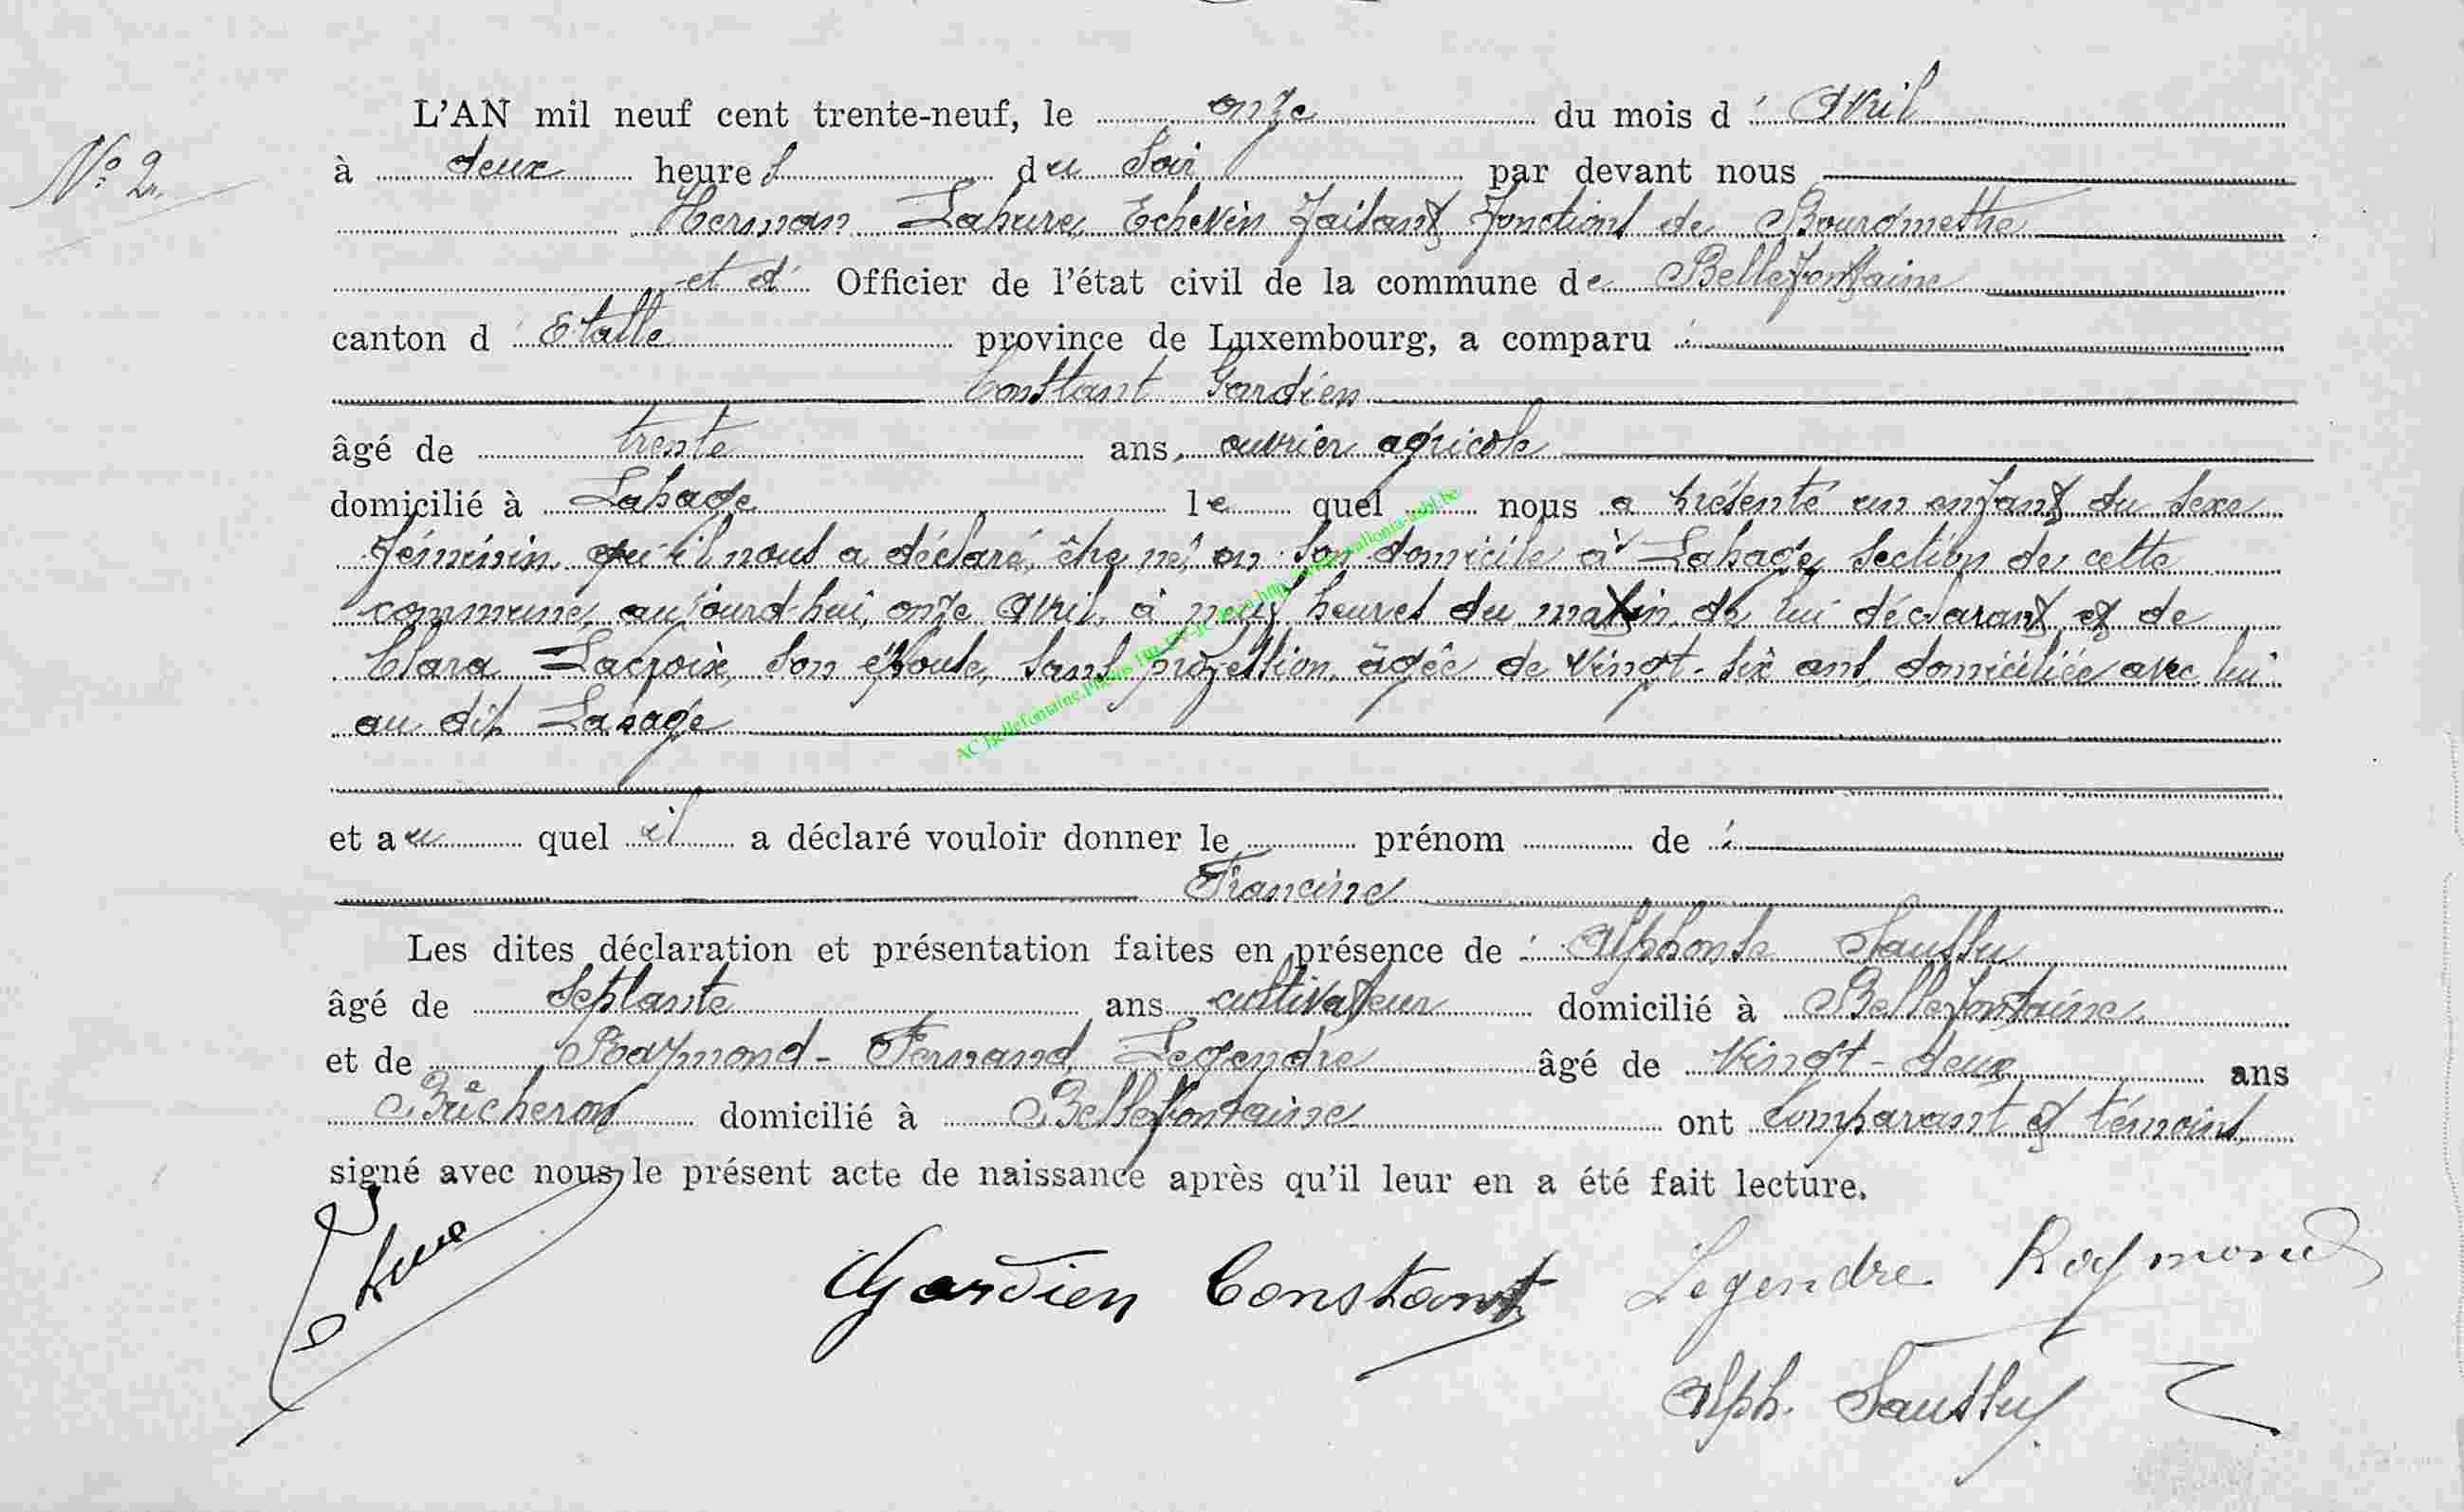 L'AN mil neuf cent trente-neuf, le onze du mois d' Avril
N° 2.
à deux heures du soir par devant nous
Herman Lahure, Echevin faisant fonctions de Bourgmestre
et d' Officier de l'état civil de la commune de Bellefontaine
canton d' Etalle province de Luxembourg, a comparu :
Constant Gardien
âgé de trente ans, ouvrier agricole
domicilié à Lahage lequel nous a présenté un enfant du sexe
féminin qu'il nous a déclaré être né, en son domicile à Lahage, section de cette
commune, aujourd'hui, onze Avril, à neuf heures du matin, de lui déclarant et de
Clara Lacroix, son épouse, sans profession, âgée de vingt-six ans, domiciliée avec lui
au dit Lahage
et au quel il a déclaré vouloir donner le prénom de :
Francine
Les dites déclaration et présentation faites en présence de : Alphonse Saussu
âgé de septante ans cultivateur domicilié à Bellefontaine
et de Raymond-Fernand Legendre âgé de vingt-deux ans
Bûcheron domicilié à Bellefontaine ont comparant et témoins
signé avec nous le présent acte de naissance après qu'il leur en a été fait lecture.
Gardien Constant Legendre Raymond
Alph. Saussu